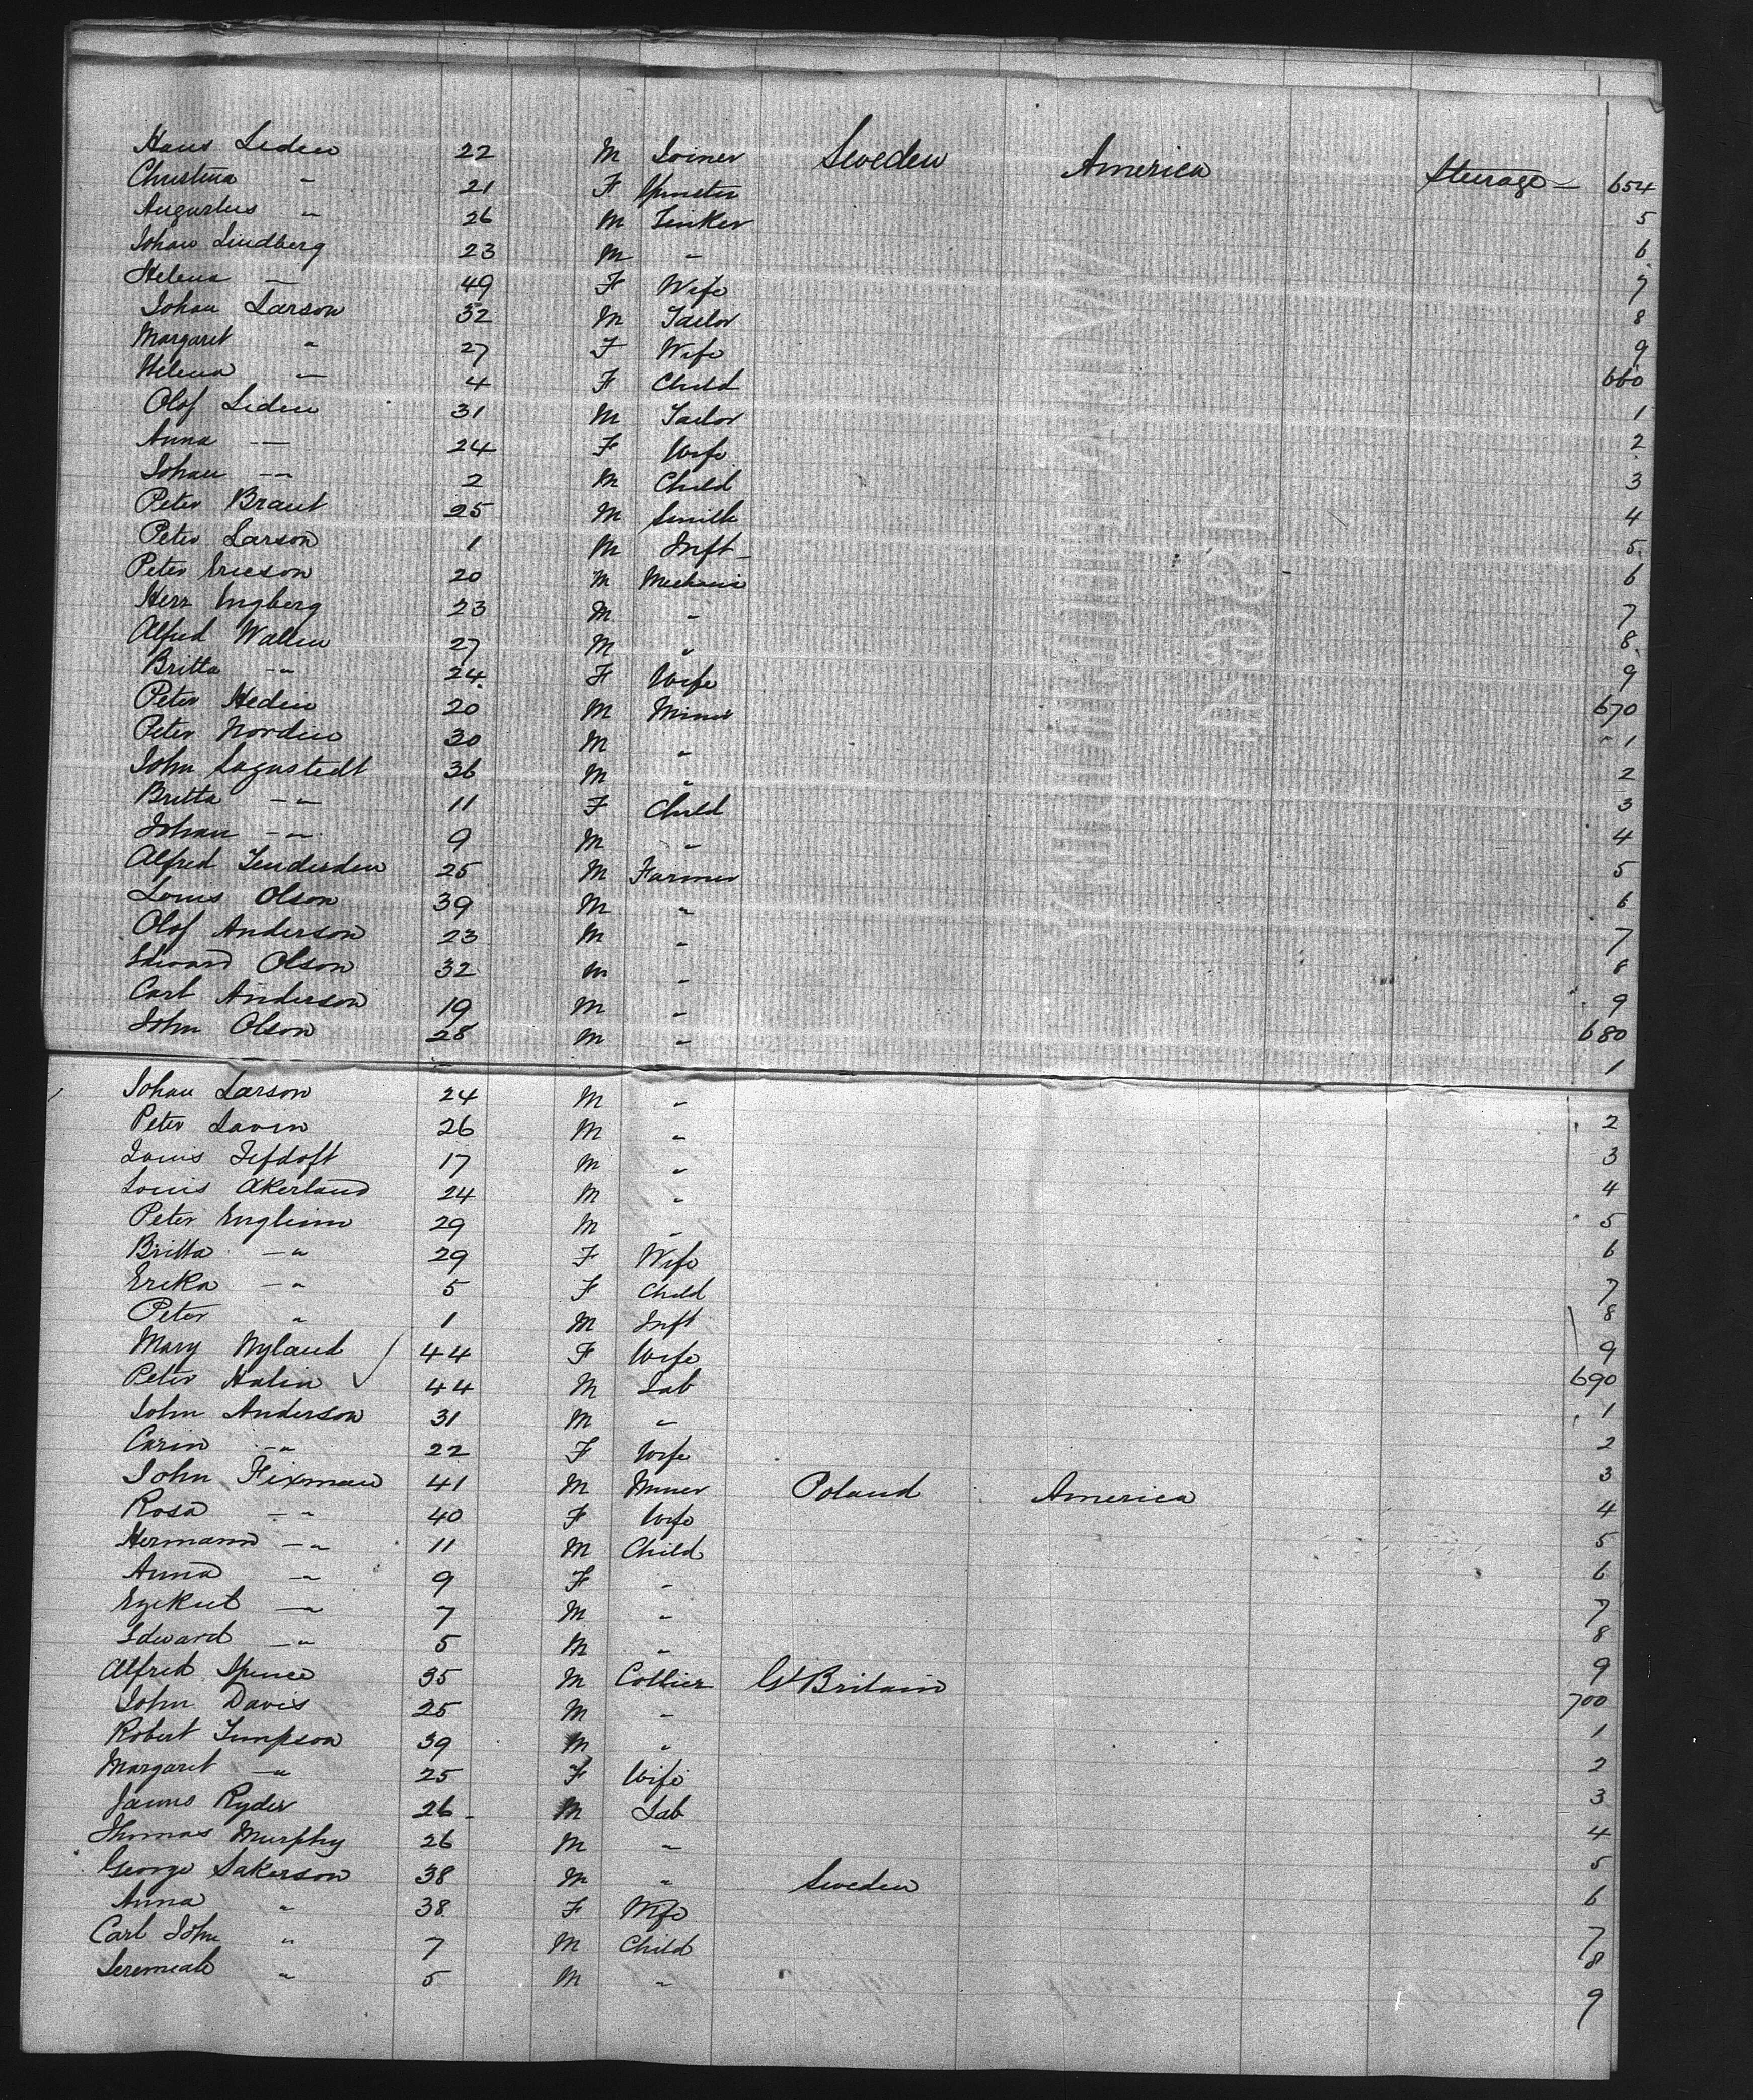 Hans Liden 22 M Joiner Sweden America Steerage — 654
Christina " 21 F Spinster 5
Augustus " 26 M Tinker 6
Johan Lindberg 23 M " 7
Helena — 49 F Wife 8
Johan Larson 32 M Tailor 9
Margaret " 27 F Wife 660
Helena — 4 F Child 1
Olof Liden 31 M Tailor 2
Anna — 24 F Wife 3
Johan — 2 M Child 4
Peter Braut 25 M Smith 5
Peter Larson 1 M Inft 6
Peter Ericson 20 M Mechanic 7
Herr Engberg 23 M " 8
Alfred Wallin 27 M " 9
Britta — " 24 F Wife 670
Peter Hedin 20 M Miner 1
Peter Nordin 30 M " 2
John Lagustedt 36 M " 3
Britta — " 11 F Child 4
Johan — " 9 M " 5
Alfred 25 M Farmer 6
Louis Olson 39 M " 7
Olof Anderson 23 M " 8
Edward Olson 32 M " 9
Carl Anderson 19 M " 680
John Olson 28 M " 1
Johan Larson 24 M " 2
Peter 26 M " 3
Louis 17 M " 4
Louis Akerland 24 M " 5
Peter Englinn 29 M " 6
Britta — " 29 F Wife 7
Erika — " 5 F Child 8
Peter " 1 M Inft 9
Mary Nyland 44 F Wife 690
Peter Halin 44 M Lab 1
John Anderson 31 M " 2
Carin — " 22 F Wife 3
John Fixman 41 M Miner Poland America 4
Rosa — " 40 F Wife 5
Hermann — " 11 M Child 6
Anna — " 9 F " 7
Ezekiel — " 7 M " 8
Edward — " 5 M " 9
Alfred Spence 35 M Collier Gt Britain 700
John Davis 25 M " 1
Robert Simpson 39 M " 2
Margaret — " 25 F Wife 3
James Ryder 26 M Lab 4
Thomas Murphy 26 M " 5
George Sakerson 38 M " Sweden 6
Anna " 38 F Wife 7
Carl John " 7 M Child 8
Jeremiah " 5 M " 9